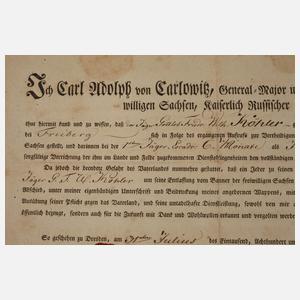 Ich Carl Adolph von Carlowitz, General-Major u
willigen Sachsen, Kaiserlich Russischer
thue hiermit kund und zu wissen, daß der Jäger Köhler
bei Freiberg sich in Folge des ergangenen Aufrufs zur Vertheidigung
Sachsen gestellt, und darinnen bei der 1ten Jäger 6 Monate als
sorgfältige Verrichtung der ihm im Lande und Felde zugekommenen Dienstobliegenheiten den vollständigen
Da jedoch die dermalige Gefahr des Vaterlandes nunmehro gestattet, daß ein Jeder zu seinem
Jäger Köhler um seine Entlassung vom Banner der freiwilligen Sachsen
Abschied, unter meiner eigenhändigen Unterschrift und Beidrückung meines angebornen Wappens, mit
Erfüllung seiner Pflicht gegen das Vaterland, seine untadelhafte Dienstleistung, sowohl von mir
öffentlich bezeugt, sondern auch für die Zukunft mit Dank und Wohlwollen erkannt und vergolten werde
So geschehen zu Dresden, am 31sten Julius des Eintausend, Achthundert un